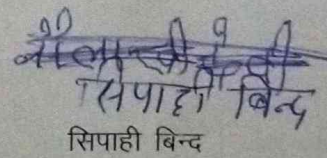 सिपाही बिन्द
सिपाही बिन्द